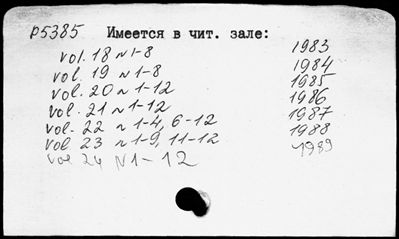 p5385 Имеется в чит. зале:
vol. 18 N1-8 1983
vol. 19 N1-8 1984
vol. 20 N1-12 1985
vol. 21 N1-12 1986
vol. 22 N 1-4, 6-12 1987
vol. 23 N 1-9, 11-12 1988
vol 24 N1-12 1989